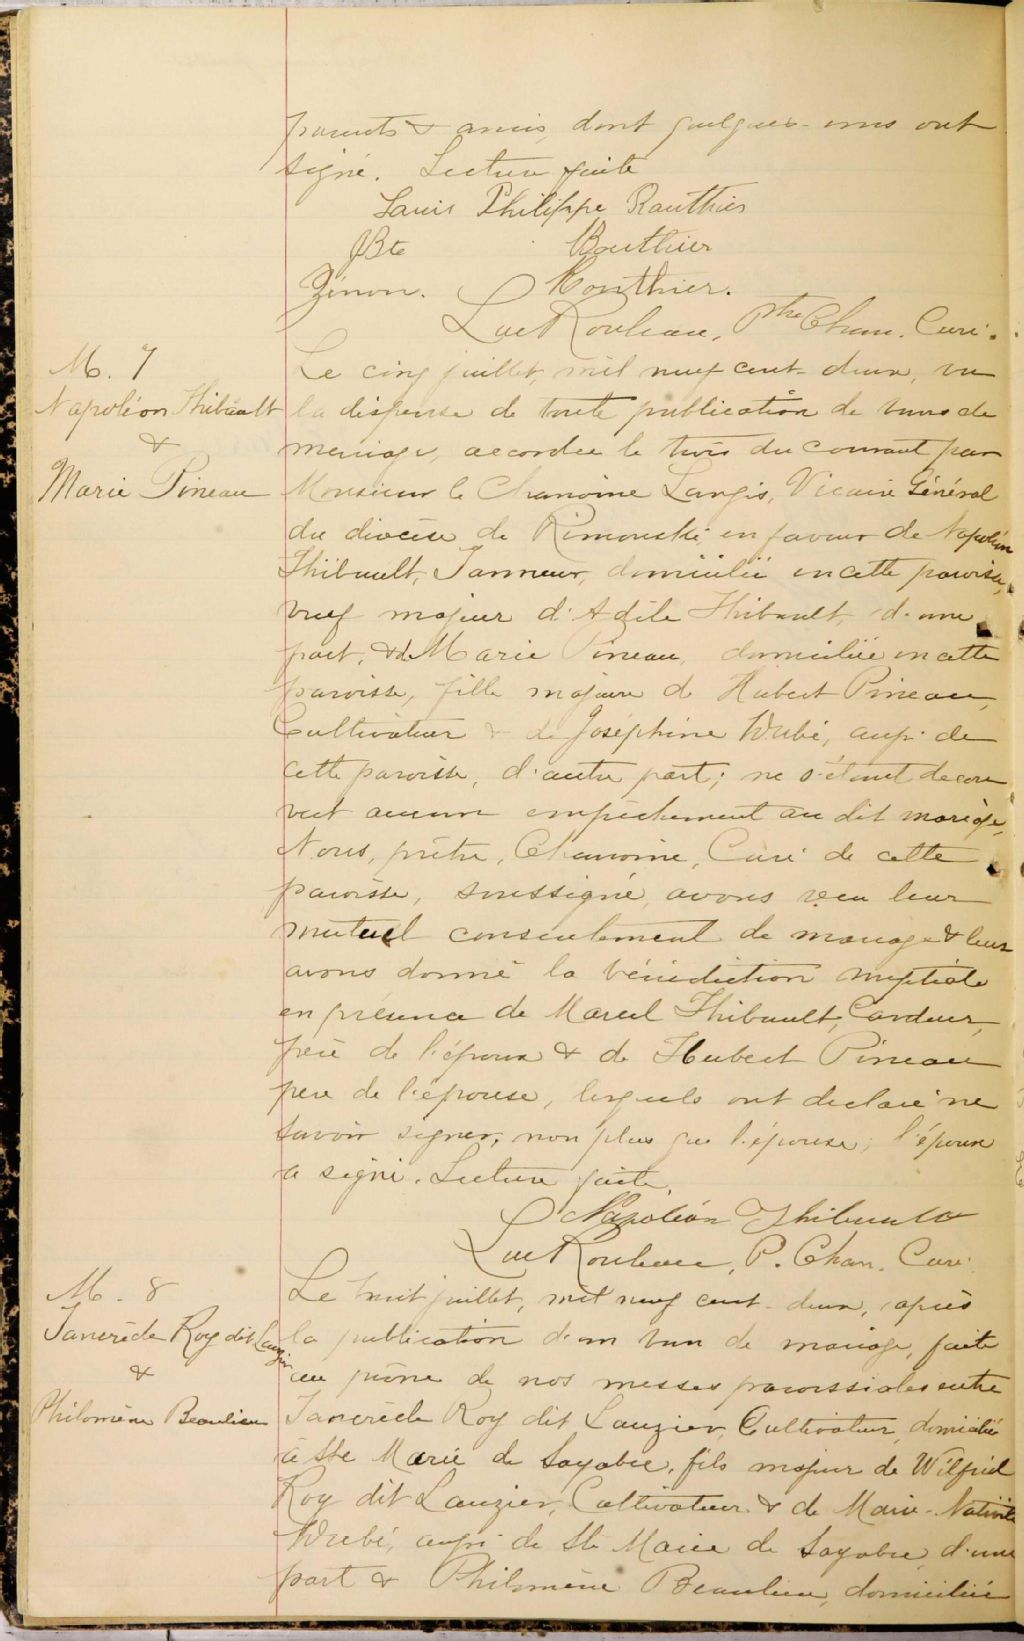 parents & amis, dont quelques-uns ont
signé. Lecture faite
Louis Philippe Routhier
JBte Routhier
Zénon. Routhier.
Luc Rouleau, Ptre Chan. Curé.
M. 7
Napoléon Thibault
&
Marie Pineau
Le cinq juillet, mil neuf cent-deux, vu
la dispense de toute publication de bans de
mariage, accordée le trois du courant par
Monsieur le Chanoine Langis, Vicaire Général
du diocèse de Rimouski en faveur de Napoléon
Thibault, Tanneur, domicilié en cette paroisse,
veuf majeur d'Adèle Thibault, d'une
part, & de Marie Pineau, domiciliée en cette
paroisse, fille majeure de Hubert Pineau,
Cultivateur & de Joséphine Dubé, aussi de
cette paroisse, d'autre part; ne s'étant décou
vert aucun empêchement au dit mariage,
Nous, prêtre, Chanoine, Curé de cette
paroisse, soussigné, avons reçu leur
mutuel consentement de mariage & leur
avons donné la bénédiction nuptiale
en présence de Marcel Thibault, Cardeur,
père de l'époux & de Hubert Pineau
père de l'épouse, lesquels ont déclaré ne
savoir signer, non plus que l'épouse; l'époux
a signé. Lecture faite.
Napoléon Thibault
Luc Rouleau, P. Chan. Curé.
M. 8
Tancrède Roy dit Lauzier
&
Philomène Beaulieu
Le huit juillet, mil neuf cent-deux, après
la publication d'un ban de mariage, faite
au prône de nos messes paroissiales entre
Tancrède Roy dit Lauzier, Cultivateur, domicilié
à Ste Marie de Sayabec, fils majeur de Wilfrid
Roy dit Lauzier, Cultivateur & de Marie-Nativité
Dubé, aussi de Ste Marie de Sayabec, d'une
part & Philomène Beaulieu, domiciliée